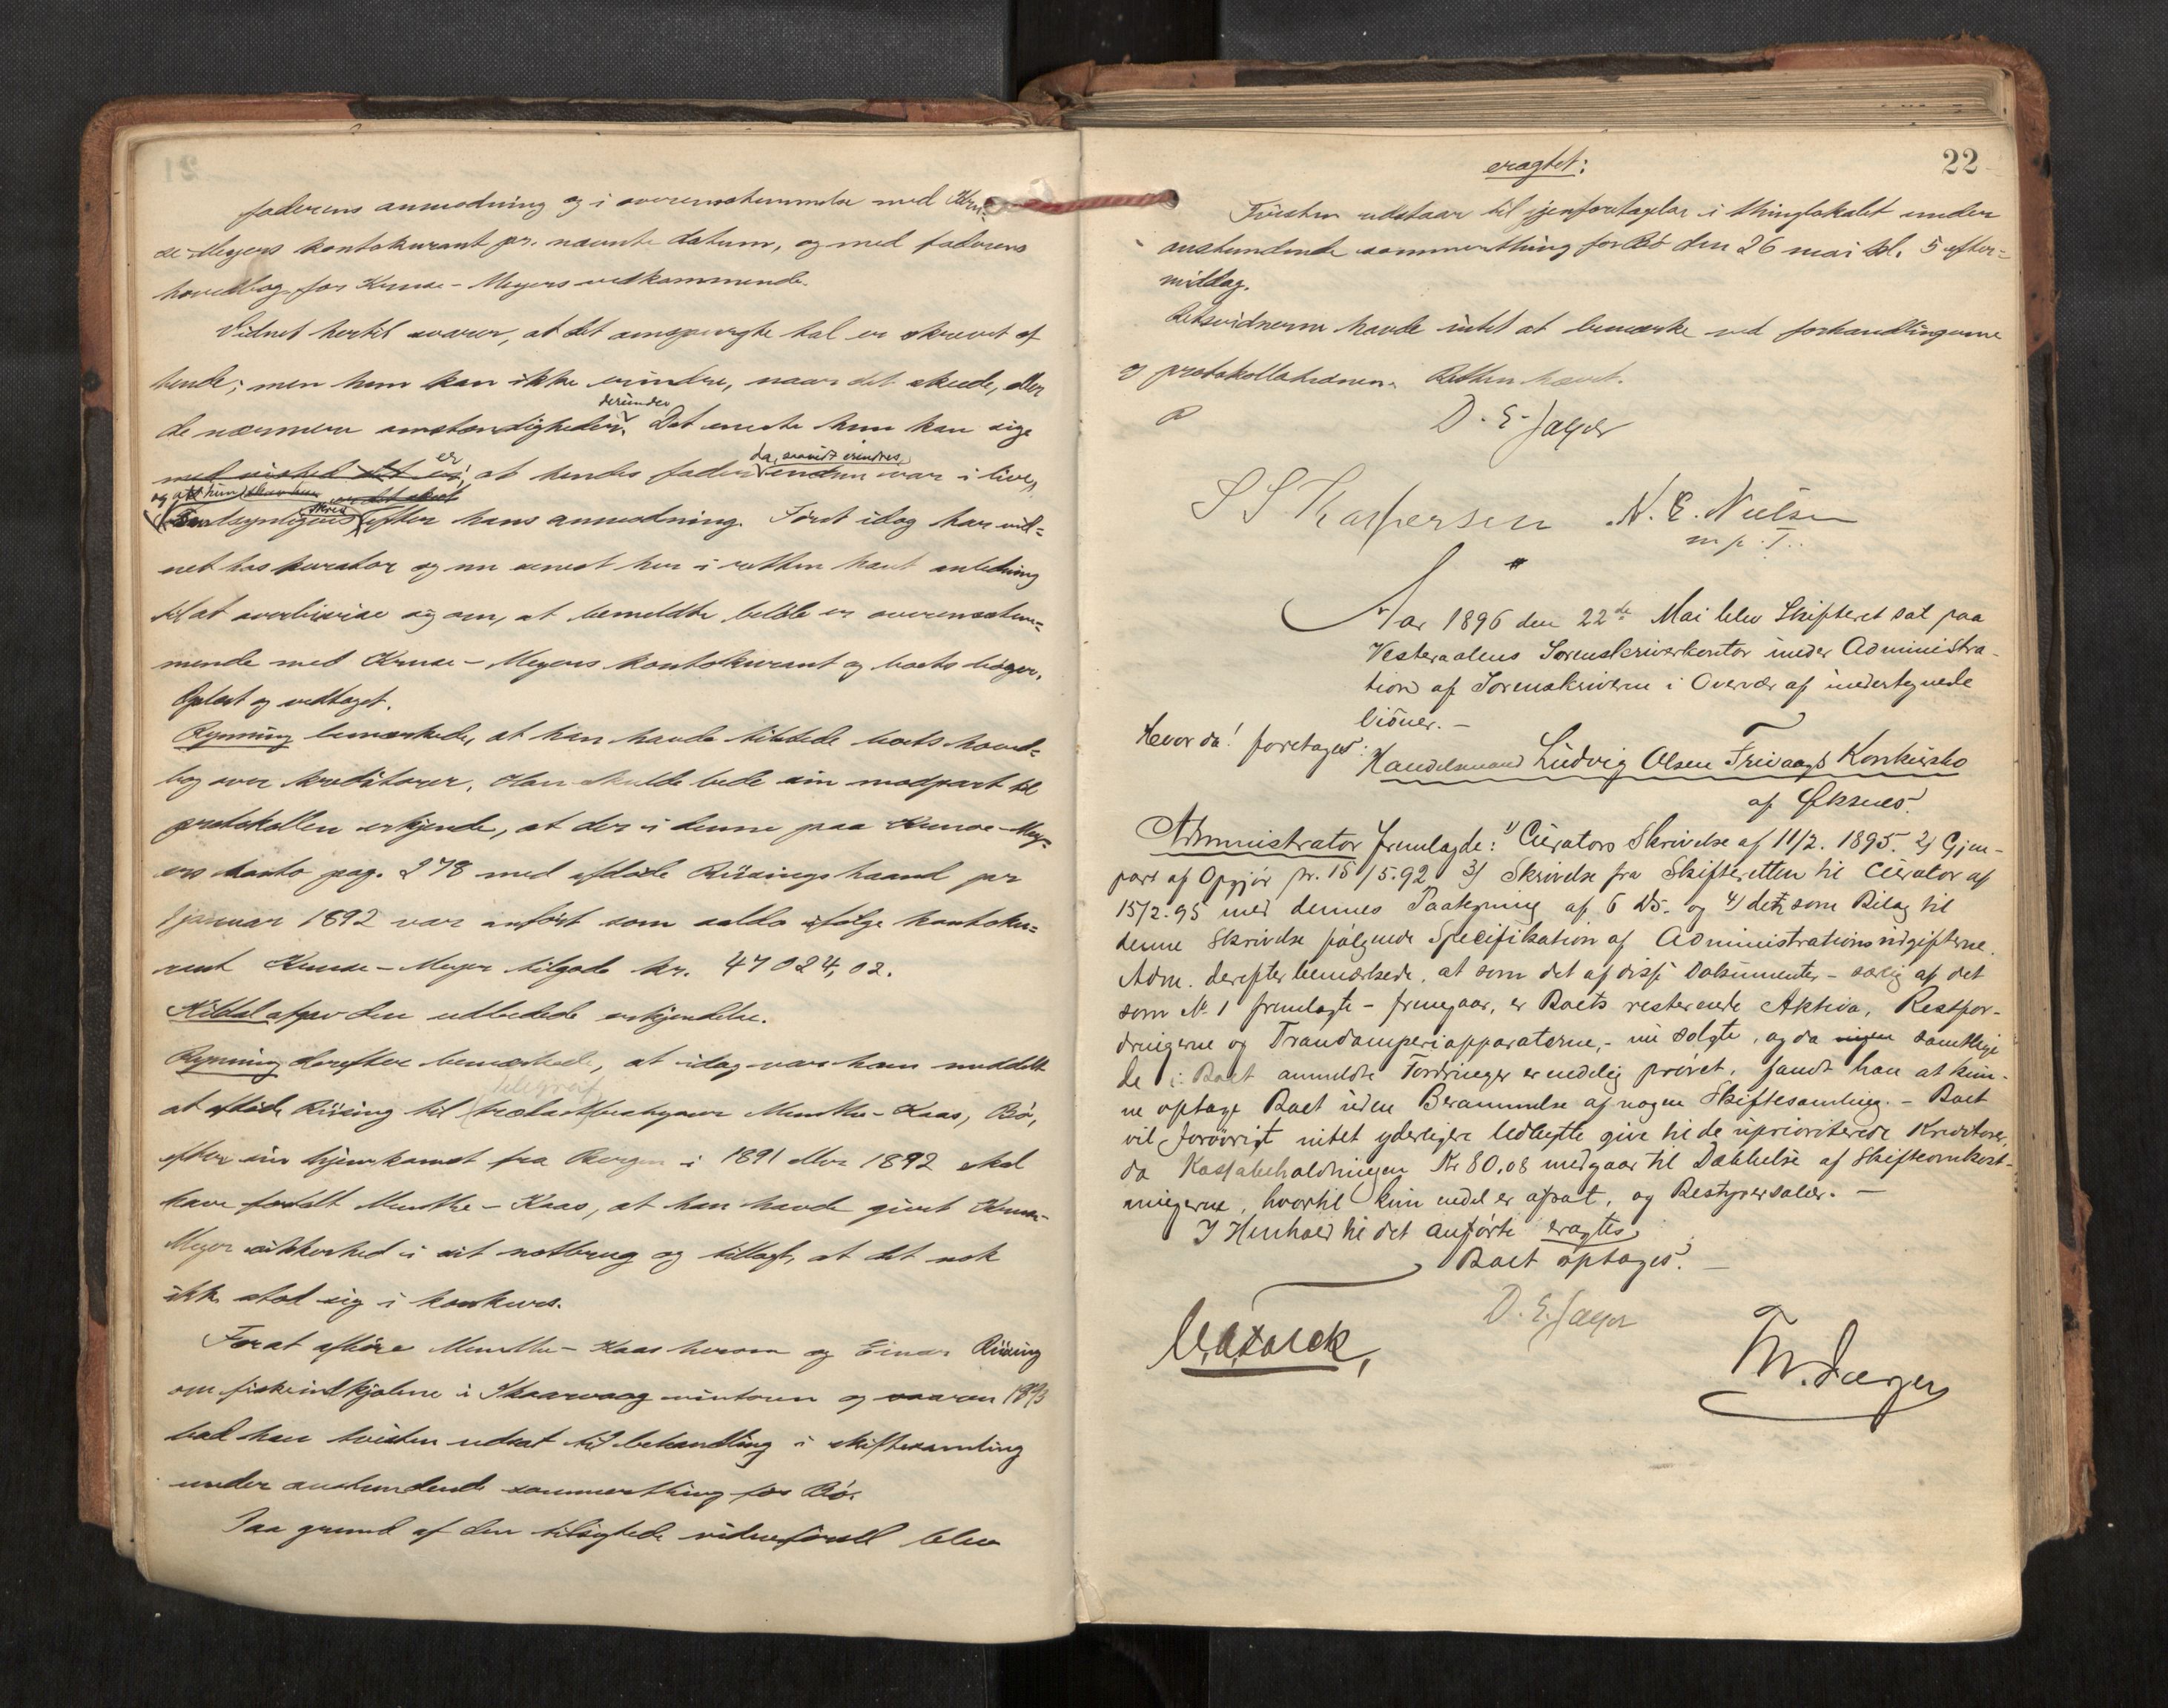 faderens anmodning og i overensstemmelse med Kru-
se-Meyers kontokurant pr. nævnte datum, og med faderens
hovedbog for Kruse-Meyers vedkommende.
Vidnet hertil svarer, at det omspurgte tal er skrevet af
hende; men hun kan ikke erindre, naar det skede, eller
derunder
de nærmere omstændigheder. Det eneste hun kan sige
er da, saavidt erindres,
med vished det er, at hendes fader endnu var i live,
og at hun
skrev
sandsynligvis efter hans anmodning. Först idag har vid=
net hos kurator og nu senest her i retten havt anledning
til at overbevise sig om, at bemeldte beløb er overensstem=
mende med Kruse-Meyers kontokurant og boets bøger.
Oplæst og vedtaget.
Rynning bemærkede, at han havde tilstede boets hoved=
bog over kreditorer. Han skulde bede sin modpart til
protokollen erkjende, at der i denne paa Kruse-Mey-
ers konto pag. 278 med afdøde Riisings haand pr
1 januar 1892 var anført som saldo ifølge kontoku=
rant Kruse-Meyer tilgode kr. 47024,02.
Kildal afgav den udbedede erkjendelse.
Rynning derefter bemærkede, at idag var ham meddelt
telegraf
at afdøde Riising til bestyrer Munthe-Kaas, Bö,
efter sin hjemkomst fra Bergen i 1891 eller 1892 skal
have fortalt Munthe-Kaas, at han havde givet Kruse-
Meyer sikkerhed i sit notbrug og tillagt, at det nok
ikke stod sig i konkurs.
For at afhöre Munthe-Kaas herom og Einar Riising
om fiskeindkjøbene i Skaarvaag vinteren og vaaren 1893
bad han tvisten udsat til behandling i skiftesamling
under anstundende sommerthing for Bö.
Paa grund af den tilsigtede vidneførsel blev
22
eragtet:
Tvisten udstaar til gjenforetagelse i thinglokalet under
anstundende sommerthing for Bö den 26 mai kl. 5 efter=
middag.
Retsvidnerne havde intet at bemærke ved forhandlingerne
og protokollationen. Retten hævet.
D. E. Jæger
S S Kaspersen N. E. Nielsen
m. p. P.
Aar 1896 den 22de Mai blev Skifteret sat paa
Vesteraalens Sorenskriverkontor under Administra-
tion af Sorenskriveren i Overvær af undertegnede
Vidner. -
Hvor da! foretages:
Handelsmand Ludvig Olsen Frivaags Konkursbo
af Øksnes.
Administrator fremlagde: 1) Curators Skrivelse af 11/2. 1895. 2) Gjen-
part af Opgjør pr. 15/5.92 3) Skrivelse fra Skifteretten til Curator af
15/2.95 med dennes Paategning af 6 ds. og 4) det som Bilag til
denne Skrivelse følgende Specifikation af Administrationsudgifterne.
Adm. derefter bemærkede, at som det af disse Dokumenter - særlig af det
som No 1 fremlagte - fremgaar, er Boets resterende Aktiva, Restfor-
dringerne og Trandamperiapparaterne, - nu solgte, og da samtlige
de i Boet anmeldte Fordringer er endelig prøvet, fandt han at kun-
ne optage Boet uden Berammelse af nogen Skiftesamling. - Boet
vil forøvrigt intet yderligere Udbytte give til de uprioriterede Kreditorer,
da Kassabeholdningen Kr 80.08 medgaar til Dækkelse af Skifteomkost-
ningerne, hvortil kun endel er afsat, og Bestyrersalær. -
I Henhold til det anførte eragtes
Boet optages. -
D. E. Jæger
Th. Jæger